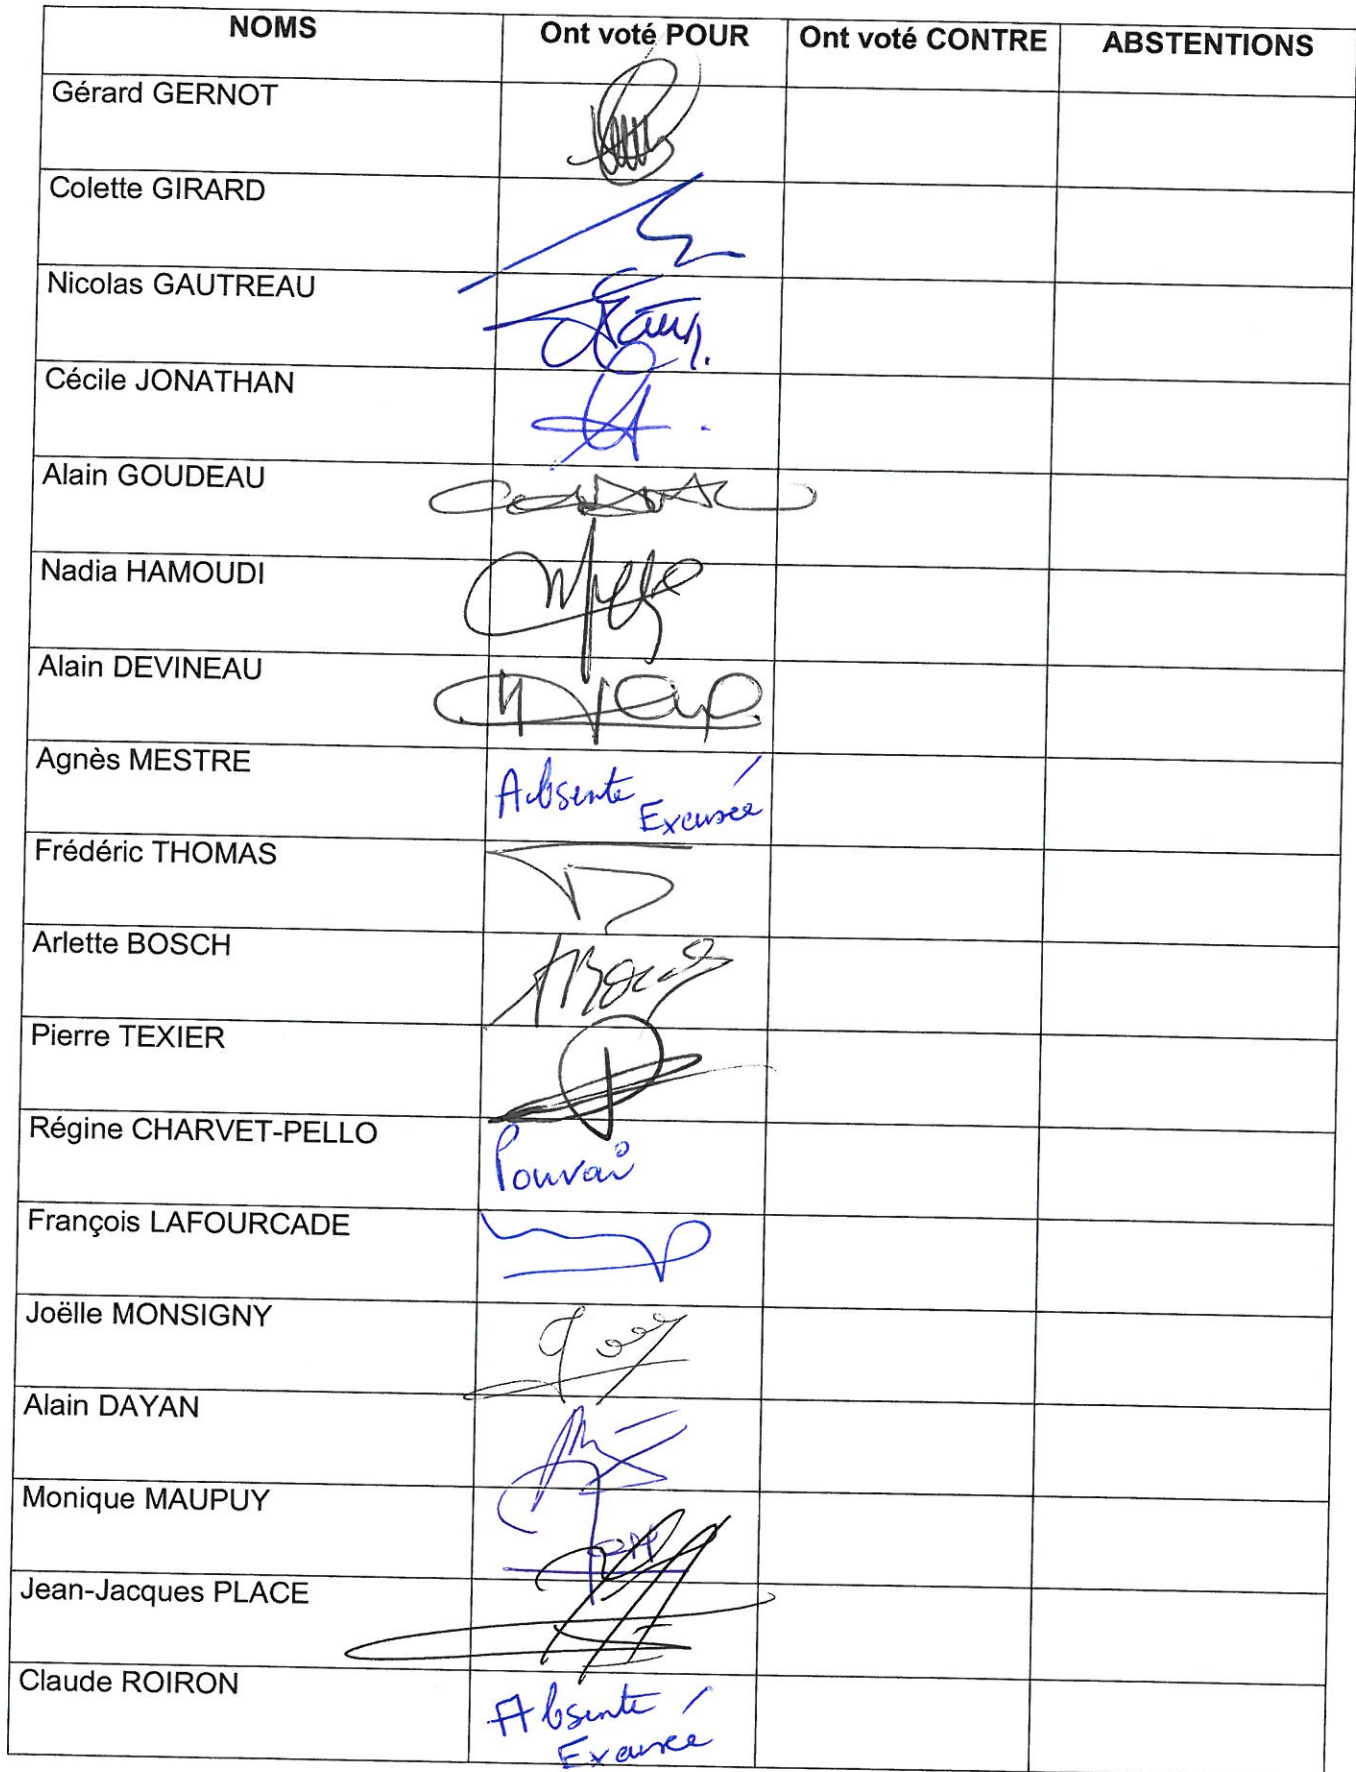 NOMS Ont voté POUR Ont voté CONTRE ABSTENTIONS
Gérard GERNOT
Colette GIRARD
Nicolas GAUTREAU
Cécile JONATHAN
Alain GOUDEAU
Nadia HAMOUDI
Alain DEVINEAU
Agnès MESTRE
Absente
Excusée
Frédéric THOMAS
Arlette BOSCH
Pierre TEXIER
Régine CHARVET-PELLO
Pouvoir
François LAFOURCADE
Joëlle MONSIGNY
Alain DAYAN
Monique MAUPUY
Jean-Jacques PLACE
Claude ROIRON
Absente
Excusée